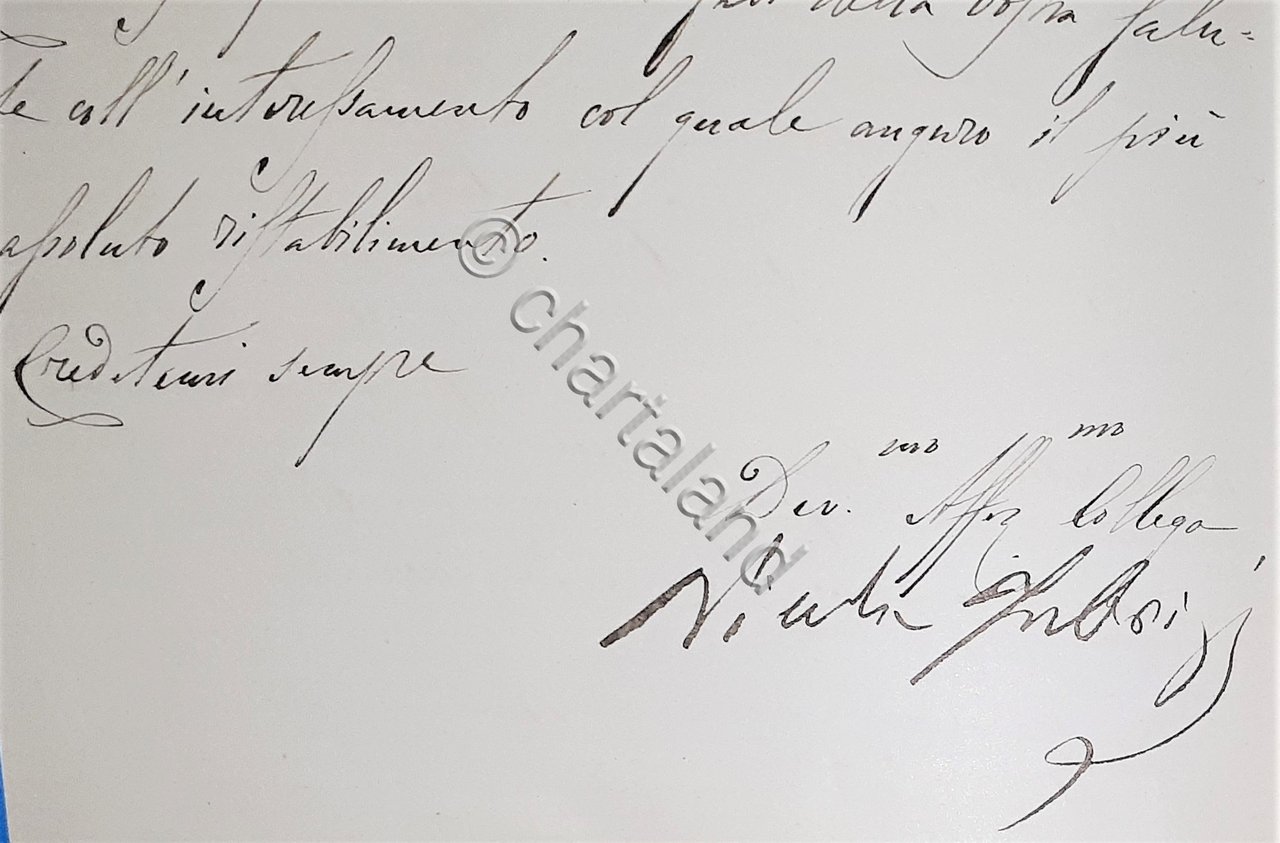 della vostra salu=
te coll'interessamento col quale auguro il più
assoluto ristabilimento.
Credetemi sempre
Dev.mo Affez.mo Collega
Nicola Fabrizj
© chartaland